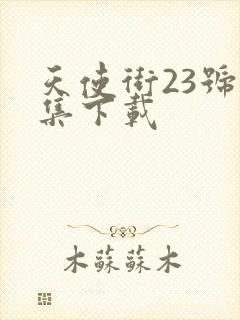 天使街23號
集下載
木蘇蘇木